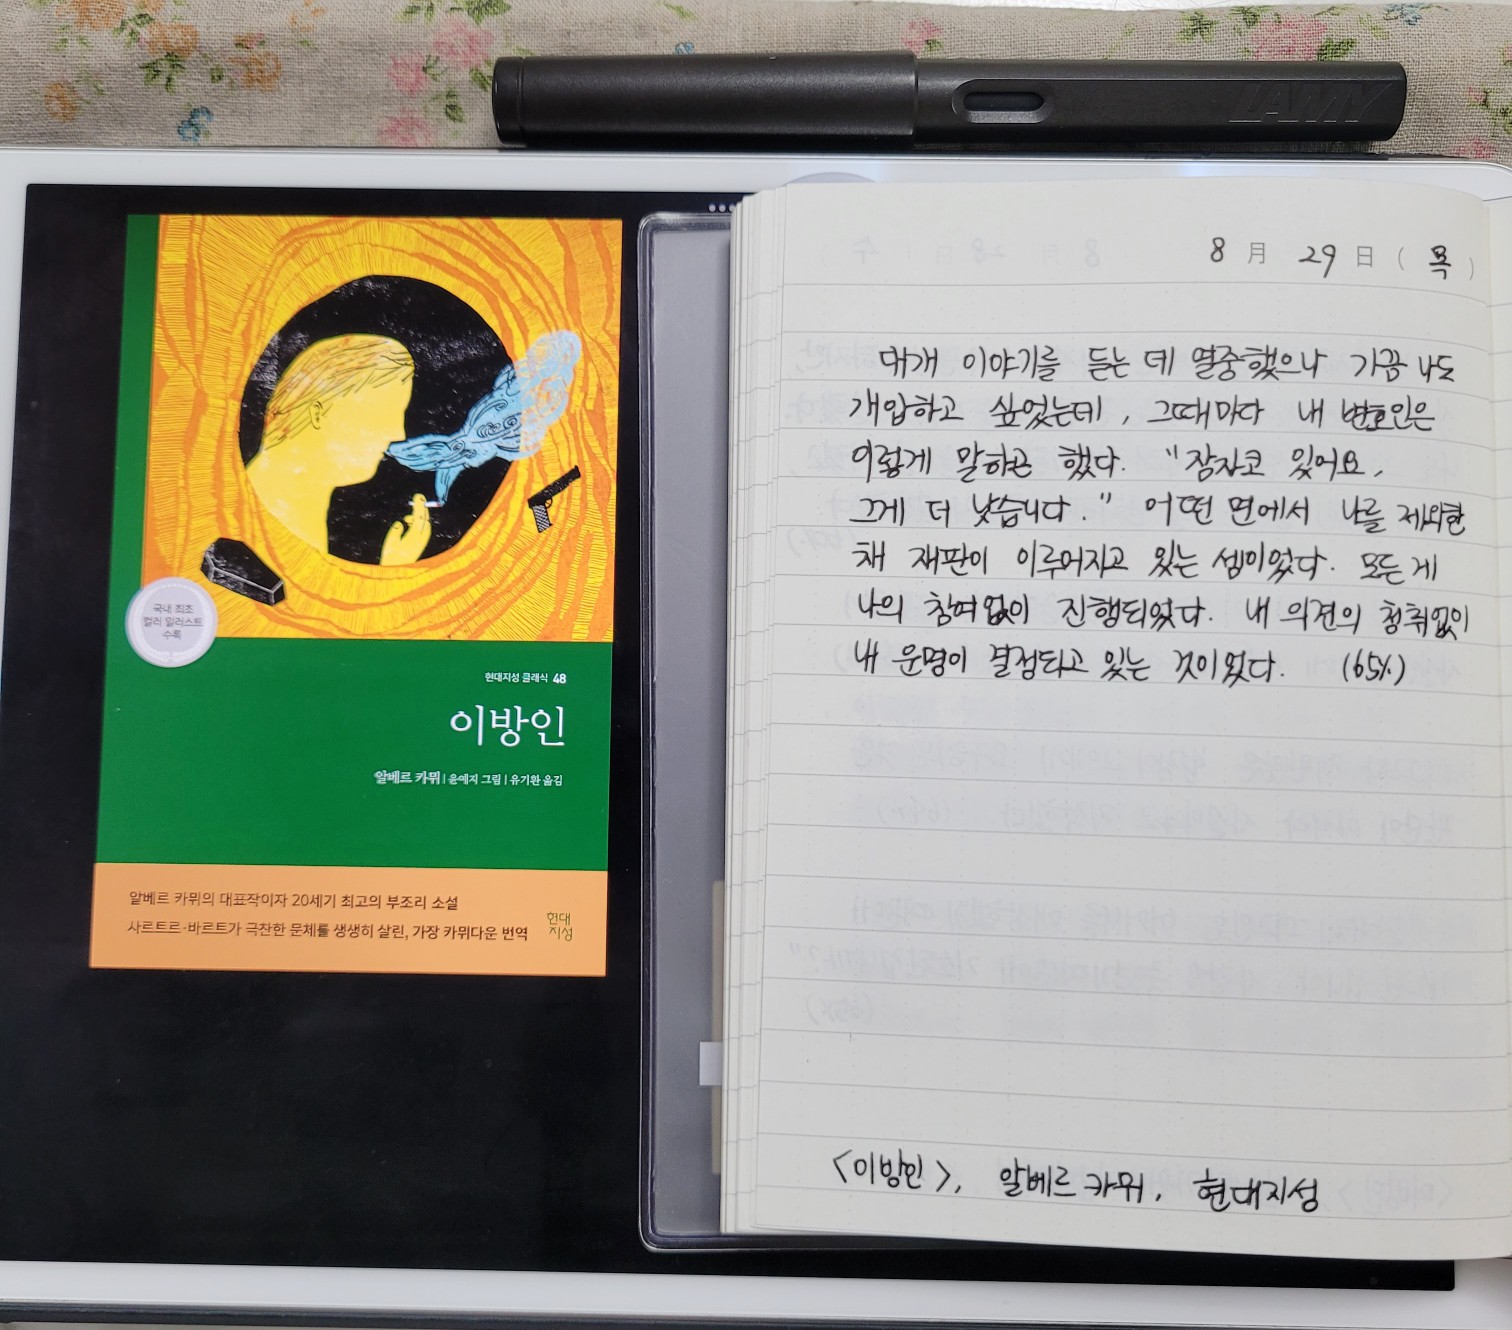 LAMY
국내 최초
컬러 일러스트
수록
현대지성 클래식 48
이방인
알베르 카뮈 | 윤예지 그림 | 유기환 옮김
알베르 카뮈의 대표작이자 20세기 최고의 부조리 소설
사르트르·바르트가 극찬한 문체를 생생히 살린, 가장 카뮈다운 번역
현대
지성
8 月 29 日 ( 목 )
대개 이야기를 듣는 데 열중했으나 가끔 나도
개입하고 싶었는데, 그때마다 내 변호인은
이렇게 말하곤 했다. "잠자코 있어요,
그게 더 낫습니다." 어떤 면에서 나를 제외한
채 재판이 이루어지고 있는 셈이었다. 모든 게
나의 참여없이 진행되었다. 내 의견의 청취없이
내 운명이 결정되고 있는 것이었다. (65%)
<이방인>, 알베르 카뮈, 현대지성